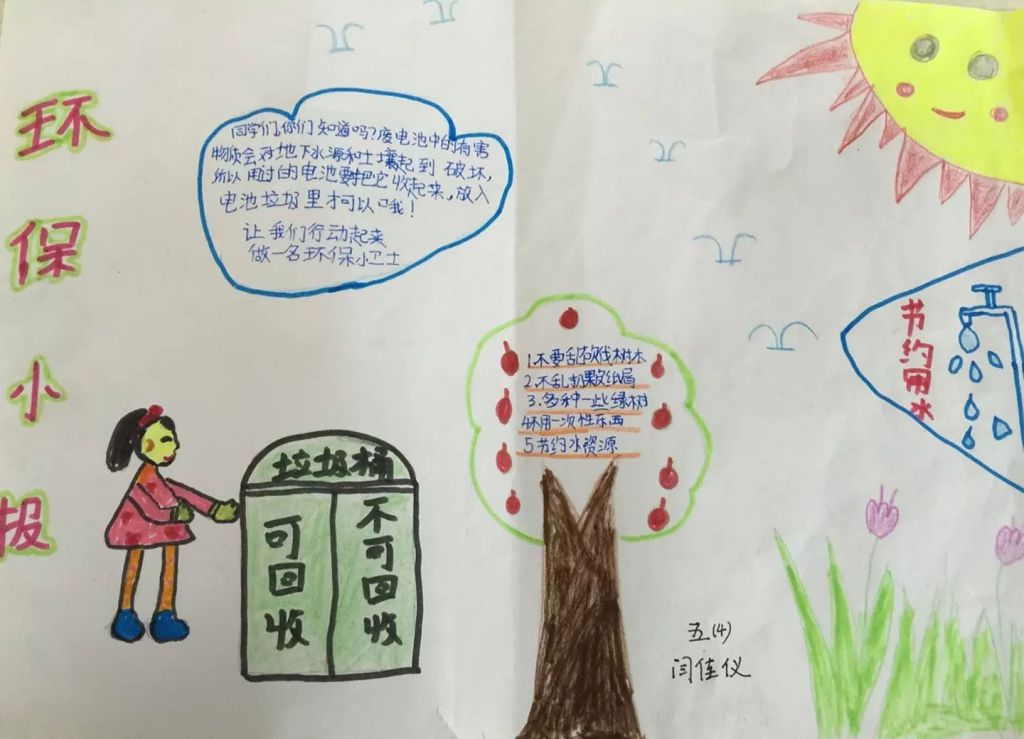 环保小报
同学们,你们知道吗?废电池中的有害
物质会对地下水源和土壤起到破坏,
所以用过的电池要把它收起来,放入
电池垃圾里才可以哦!
让我们行动起来
做一名环保小卫士
节约用水
1.不要乱砍伐树木
2.不乱扔果纸屑
3.多种一些绿树
4不用一次性东西
5节约水资源
垃圾桶
可回收
不可回收
五(4)
闫佳仪